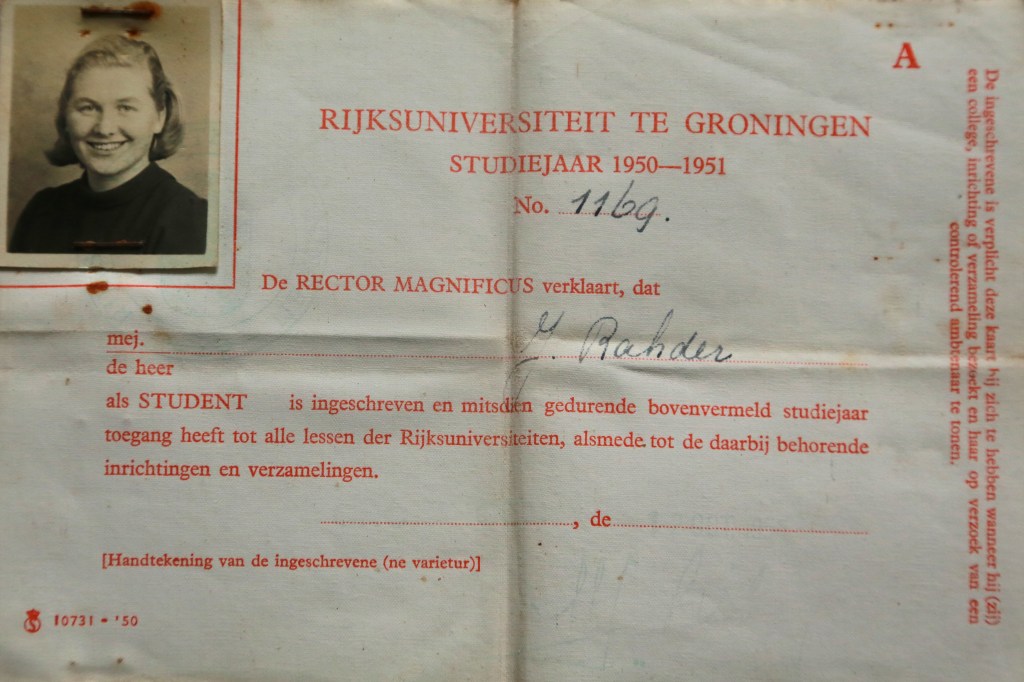 A
RIJKSUNIVERSITEIT TE GRONINGEN
STUDIEJAAR 1950—1951
No. 1169.
De RECTOR MAGNIFICUS verklaart, dat
mej.
Rahder
de heer
als STUDENT is ingeschreven en mitsdien gedurende bovenvermeld studiejaar
toegang heeft tot alle lessen der Rijksuniversiteiten, alsmede tot de daarbij behorende
inrichtingen en verzamelingen.
, de
[Handtekening van de ingeschrevene (ne varietur)]
S 10731 - '50
De ingeschrevene is verplicht deze kaart bij zich te hebben wanneer hij (zij)
een college, inrichting of verzameling bezoekt en haar op verzoek van een
controlerend ambtenaar te tonen.